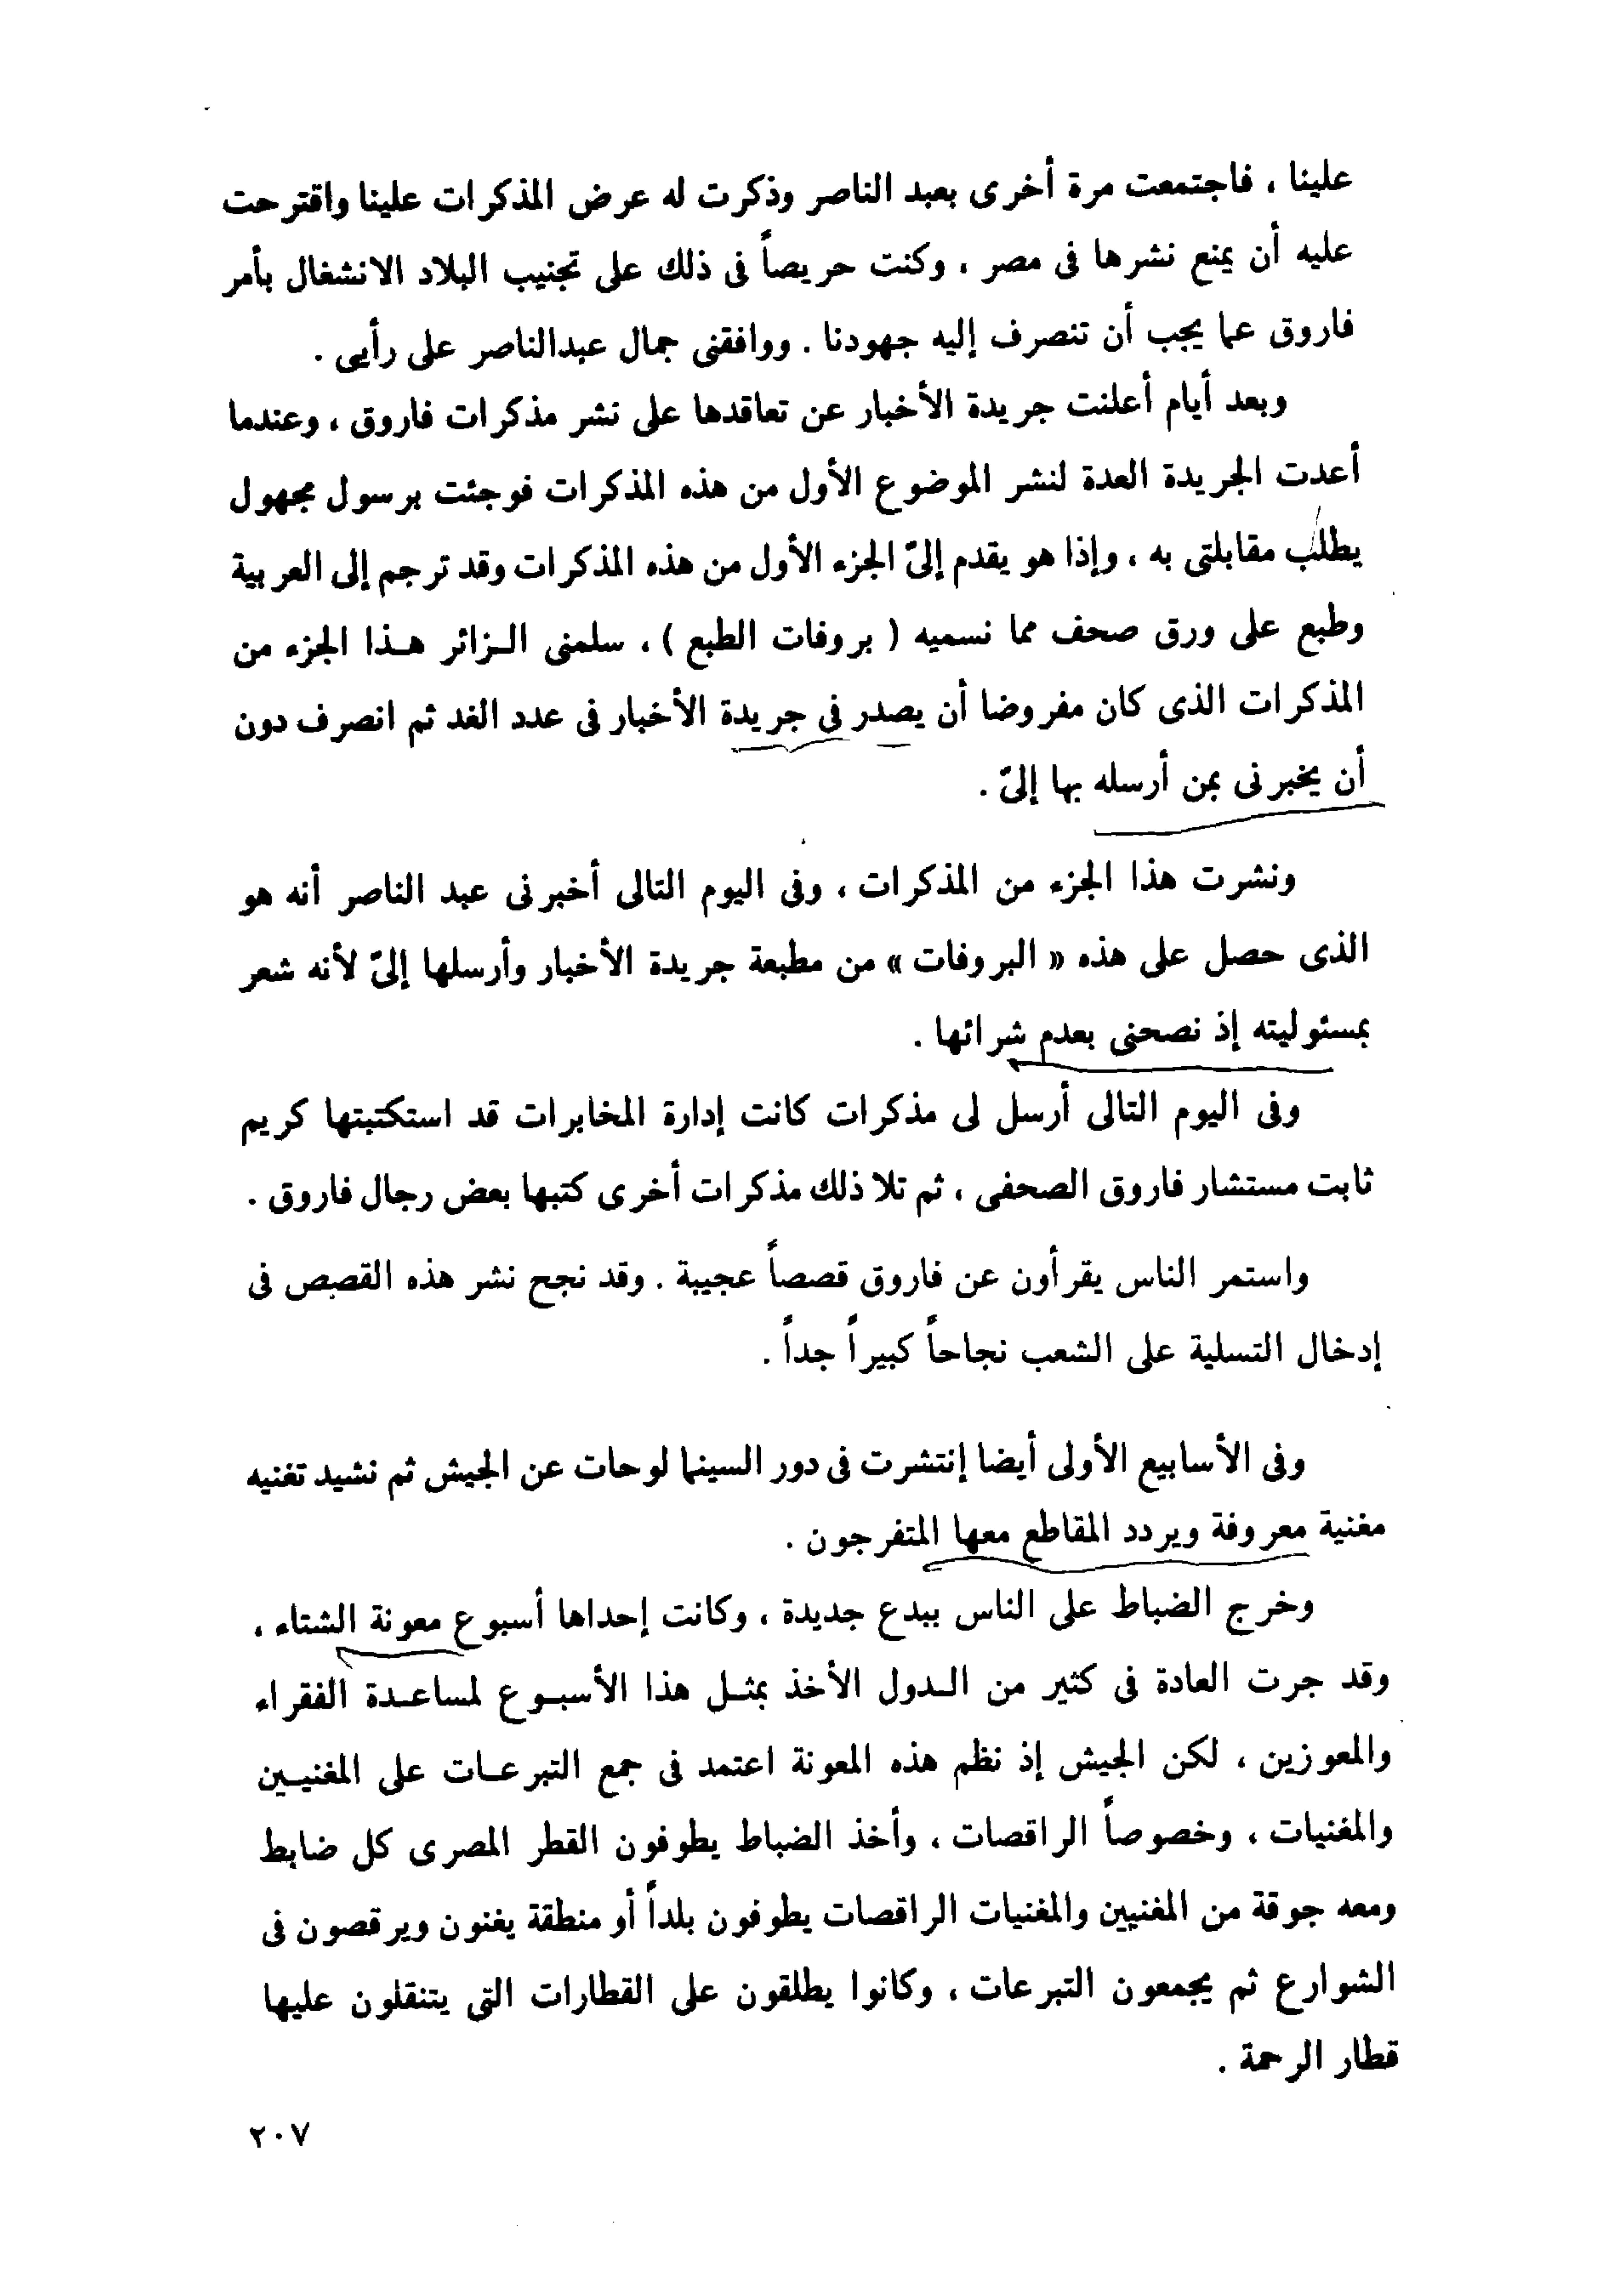 علينا ، فاجتمعت مرة أخرى بعبد الناصر وذكرت له عرض المذكرات علينا واقترحت
عليه أن يمنع نشرها فى مصر ، وكنت حريصاً فى ذلك على تجنيب البلاد الانشغال بأمر
فاروق عما يجب أن تنصرف إليه جهودنا . ووافقنى جمال عبدالناصر على رأيى .
وبعد أيام أعلنت جريدة الأخبار عن تعاقدها على نشر مذكرات فاروق ، وعندما
أعدت الجريدة العدة لنشر الموضوع الأول من هذه المذكرات فوجئت برسول مجهول
يطلب مقابلتى به ، وإذا هو يقدم إلىّ الجزء الأول من هذه المذكرات وقد ترجم إلى العربية
وطبع على ورق صحف مما نسميه ( بروفات الطبع ) ، سلمنى الـزائر هـذا الجزء من
المذكرات الذى كان مفروضا أن يصدر فى جريدة الأخبار فى عدد الغد ثم انصرف دون
أن يخبرنى بمن أرسله بها إلىّ .
ونشرت هذا الجزء من المذكرات ، وفى اليوم التالى أخبرنى عبد الناصر أنه هو
الذى حصل على هذه « البروفات » من مطبعة جريدة الأخبار وأرسلها إلىّ لأنه شعر
بمسئوليته إذ نصحنى بعدم شرائها .
وفى اليوم التالى أرسل لى مذكرات كانت إدارة المخابرات قد استكتبتها كريم
ثابت مستشار فاروق الصحفى ، ثم تلا ذلك مذكرات أخرى كتبها بعض رجال فاروق .
واستمر الناس يقرأون عن فاروق قصصاً عجيبة . وقد نجح نشر هذه القصص فى
إدخال التسلية على الشعب نجاحاً كبيراً جداً .
وفى الأسابيع الأولى أيضا إنتشرت فى دور السينما لوحات عن الجيش ثم نشيد تغنيه
مغنية معروفة ويردد المقاطع معها المتفرجون .
وخرج الضباط على الناس ببدع جديدة ، وكانت إحداها أسبوع معونة الشتاء ،
وقد جرت العادة فى كثير من الـدول الأخذ بمثـل هذا الأسبـوع لمساعـدة الفقراء
والمعوزين ، لكن الجيش إذ نظم هذه المعونة اعتمد فى جمع التبرعـات على المغنيـين
والمغنيات ، وخصوصاً الراقصات ، وأخذ الضباط يطوفون القطر المصرى كل ضابط
ومعه جوقة من المغنيين والمغنيات الراقصات يطوفون بلداً أو منطقة يغنون ويرقصون فى
الشوارع ثم يجمعون التبرعات ، وكانوا يطلقون على القطارات التى يتنقلون عليها
قطار الرحمة .
٢٠٧